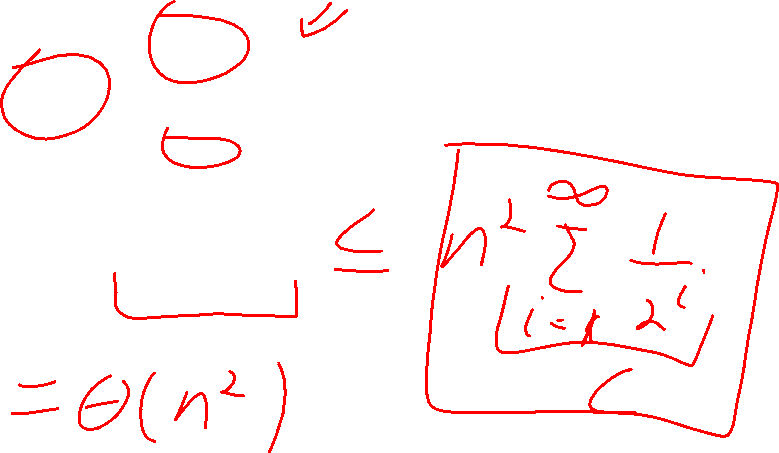 ≤ n² ∞ Σ i=1 1/2ⁱ
= Θ(n²)